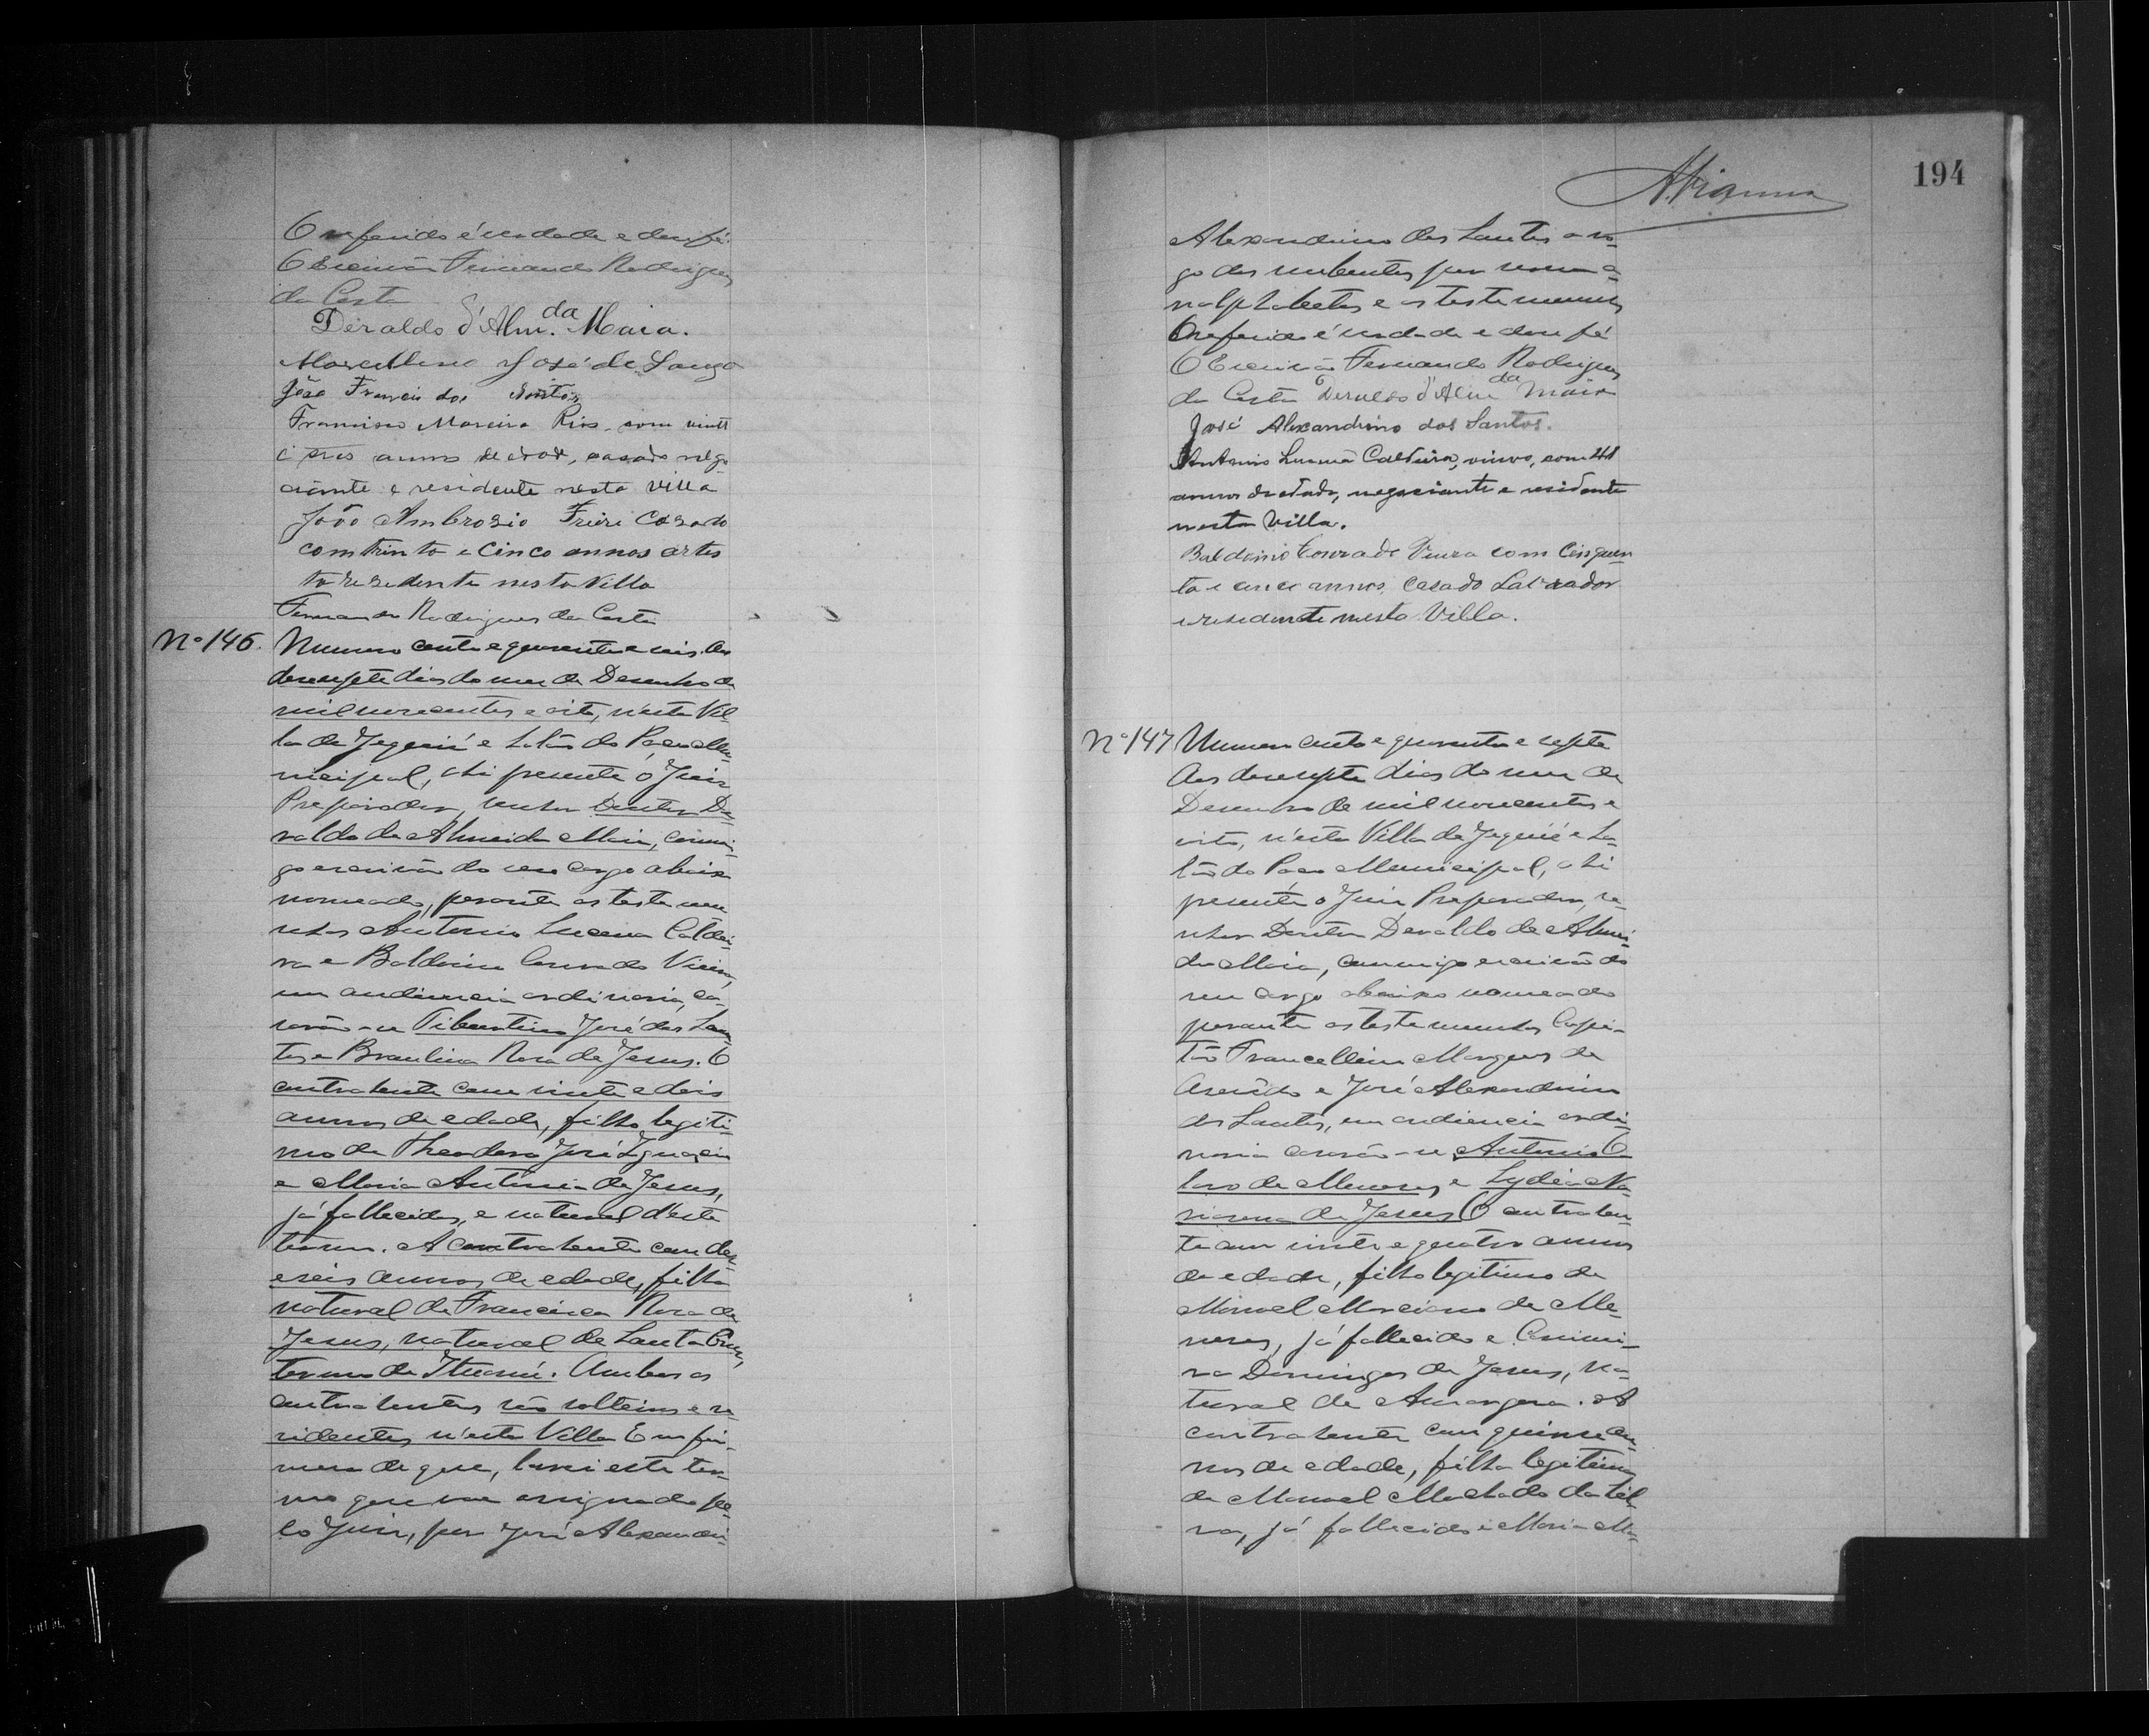 O referido é verdade e dou fé.
O Escrivão Fernando Rodrigues
da Costa
Deraldo d'Alm.da Maia.
Marcellino José de Souza
João Francis dos Santos
Francisco Moreira Rios com vinte
e tres annos de edade, casado nego
ciante e residente nesta villa
João Ambrosio Freire Casado
com trinta e cinco annos artes
ta residente nesta Villa
Fernando Rodrigues da Costa
Nº 146. Numero cento e quarenta e seis. Aos
desesepte dias do mez de Desembro de
mil novecentos e oito, n'esta Vil
la de Jequié e Salão do Paço Mu
nicipal, ahi presente o Juiz
Preparador, senhor Doutor De
raldo de Almeida Maia, commi-
go escrivão do seu cargo abaixo
nomeado, perante as testemu
nhas Antonio Lucena Caldei-
ra e Baldoino Conrado Vieira,
em audiencia ordinaria, ca-
sarão-se Tiburtino José dos San
tos e Braulina Rosa de Jesus. O
contrahente com vinte e dois
annos de edade, filho legiti-
mo de Theodoro José Ignacio
e Maria Antonia de Jesus,
já fallecidos, e natural d'este
termo. A contrahente com dez
eseis annos de edade, filha
natural de Francisca Rosa de
Jesus, natural de Santa Cruz,
termo de Ituassú. Ambos os
contrahentes são solteiros e re-
sidentes n'esta Villa Em fir-
mesa de que, lavrei este ter-
mo que vae assignado pe-
lo Juiz, por José Alexandri-
194
Alexandrino dos Santos a ro-
go dos nubentes por serem a-
nalphabetos e as testemunhas
O referido é verdade e dou fé
O Escrivão Fernando Rodrigues
da Costa Deraldo d'Alm da Maia
José Alexandrino dos Santos.
Antonio Lucena Caldeira, viuvo, com 41
annos de edade, negociante e residente
nesta Villa.
Baldoino Conrado Vieira com Cinquen
ta e cinco annos, Casado Lavrador
e residente nesta Villa.
Nº 147 Numero cento e quarenta e septe
Aos desesepte dias do mez de
Desembro de mil novecentos e
oito, n'esta Villa de Jequié e Sa-
lão do Paço Municipal, ahi
presente o Juiz Preparador, se-
nhor Doutor Deraldo de Almei-
da Maia, commigo escrivão do
seu cargo abaixo nomeado
perante as testemunhas Capi-
tão Francellino Marques de
Asevêdo e José Alexandrino
dos Santos, em audiencia ordi-
naria casarão-se Antonio O
lavo de Meneses e Lydia Na-
siasena de Jesus O contrahen-
te com vinte e quatro annos
de edade, filho legitimo de
Manoel Marciano de Me-
neses, já fallecido e Casimi-
ra Domingas de Jesus, na-
tural de Amargosa. A
contrahente com quinse an-
nos de edade, filha legitima
de Manoel Machado da Sil-
va, já fallecido e Maria Ma-